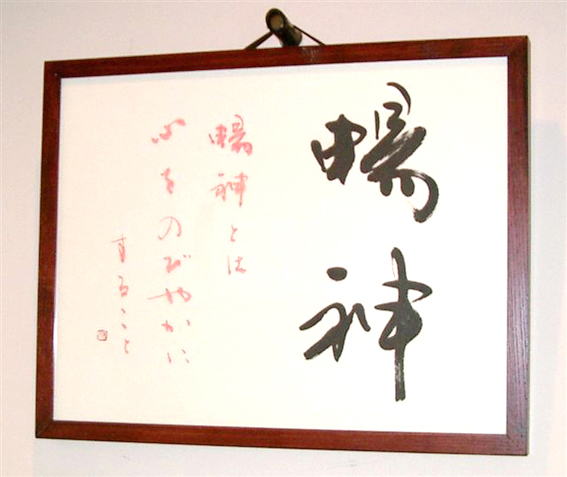 暢神
暢神とは
心をのびやかに
すること